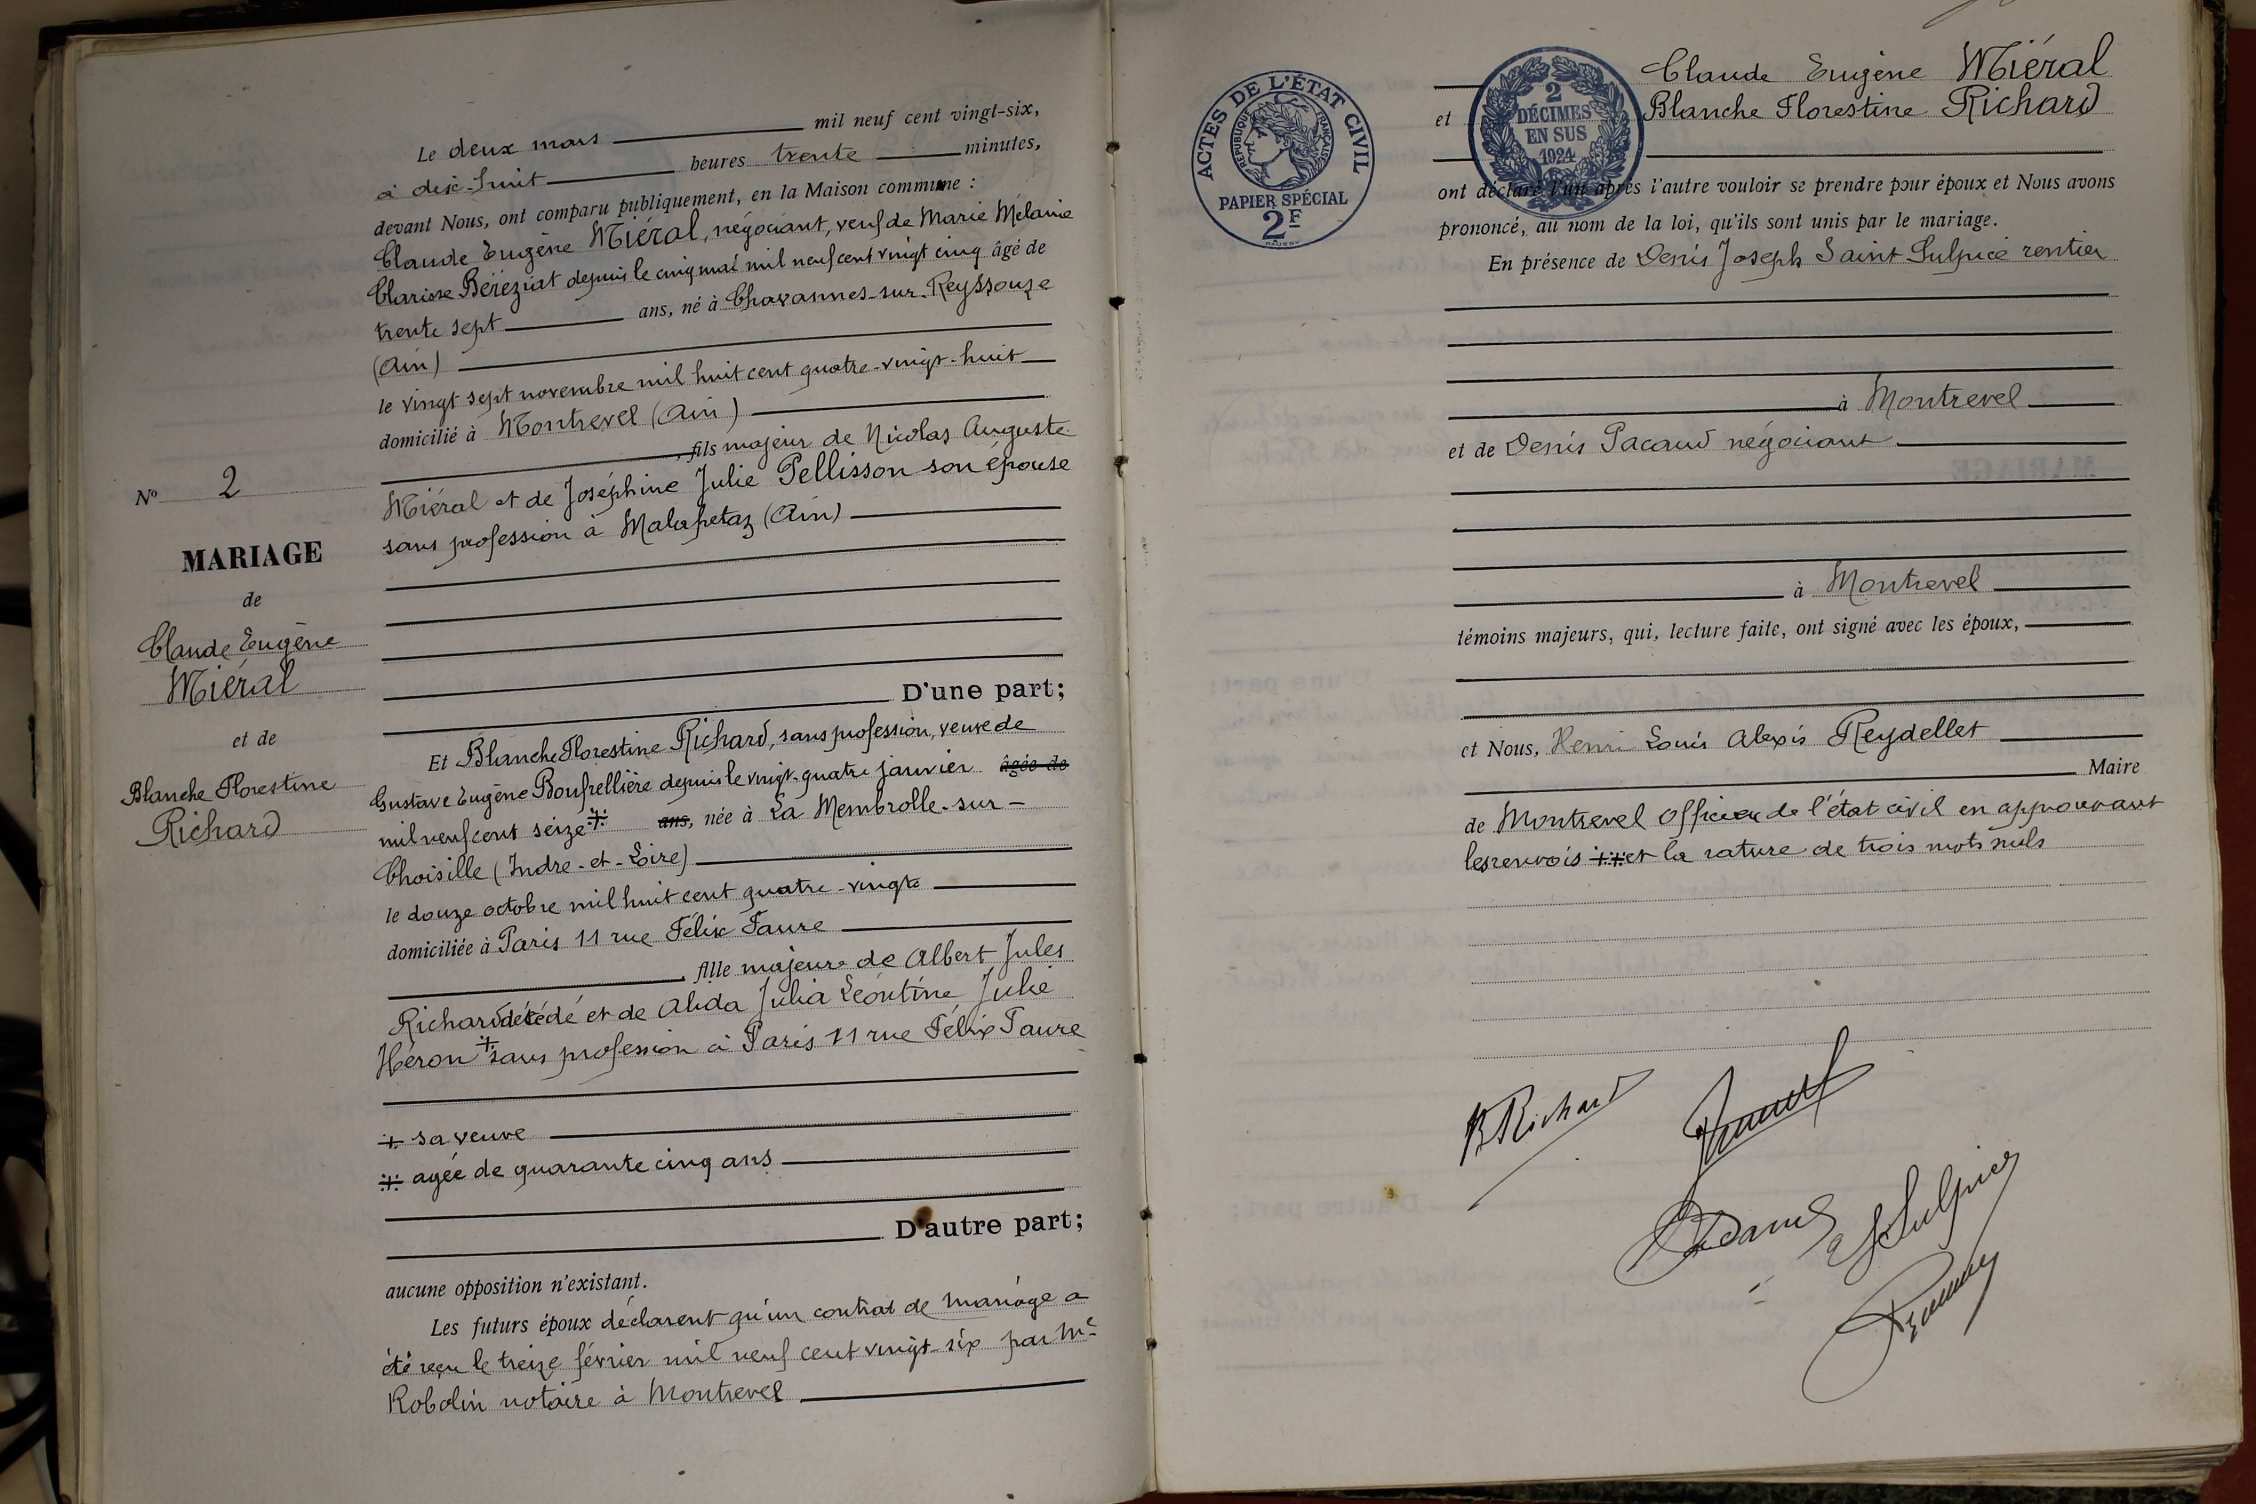 Le deux mars mil neuf cent vingt-six,
à dix-huit heures trente minutes,
devant Nous, ont comparu publiquement, en la Maison commune :
Claude Eugène Miéral, négociant, veuf de Marie Mélanie
Clarisse Béréziat depuis le cinq mai mil neuf cent vingt cinq âgé de
trente sept ans, né à Chavannes-sur-Reyssouze
(Ain)
le vingt sept novembre mil huit cent quatre-vingt-huit
domicilié à Montrevel (Ain)
, fils majeur de Nicolas Auguste
Miéral et de Joséphine Julie Pellisson son épouse
sans profession à Malafretaz (Ain)
D'une part;
N° 2
MARIAGE
de
Claude Eugène
Miéral
et de
Blanche Florestine
Richard
Et Blanche Florestine Richard, sans profession, veuve de
Gustave Eugène depuis le vingt-quatre janvier âgée de
mil neuf cent seize ⁜ ans, née à La Membrolle-sur-
Choisille (Indre-et-Loire)
le douze octobre mil huit cent quatre-vingts
domiciliée à Paris 11 rue Félix Faure
, fille majeure de Albert Jules
Richard décédé et de Alida Julia Léontine Julie
Héron + sans profession à Paris 11 rue Félix Faure
+ sa veuve
⁜ agée de quarante cinq ans
D'autre part;
aucune opposition n'existant.
Les futurs époux déclarent qu'un contrat de mariage a
été reçu le treize février mil neuf cent vingt-six par Me
Robolin notaire à Montrevel
ACTES DE L'ÉTAT CIVIL
RÉPUBLIQUE FRANÇAISE
PAPIER SPÉCIAL
2F
2
DÉCIMES
EN SUS
1924
Claude Eugène Miéral
et Blanche Florestine Richard
ont déclaré l'un après l'autre vouloir se prendre pour époux et Nous avons
prononcé, au nom de la loi, qu'ils sont unis par le mariage.
En présence de Denis Joseph Saint Sulpice rentier
à Montrevel
et de Denis Pacaud négociant
à Montrevel
témoins majeurs, qui, lecture faite, ont signé avec les époux,
et Nous, Henri Louis Alexis Reydellet
Maire
de Montrevel officier de l'état civil en approuvant
les renvois + ⁜ et la rature de trois mots nuls
B Richard